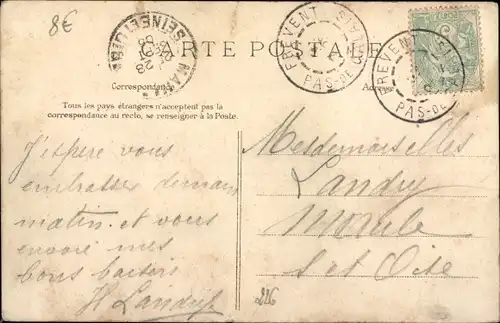 8€
CARTE POSTALE
FREVENT
PAS-DE-CALAIS
FREVENT
PAS-DE-CALAIS
SEINE-ET-OISE
28
08
Correspondance
Tous les pays étrangers n'acceptent pas la
correspondance au recto, se renseigner à la Poste.
J'espère vous
embrasser demain
matin. et vous
envoie mes
bons baisers
H Landry
Mesdemoiselles
Landry
S et Oise
226